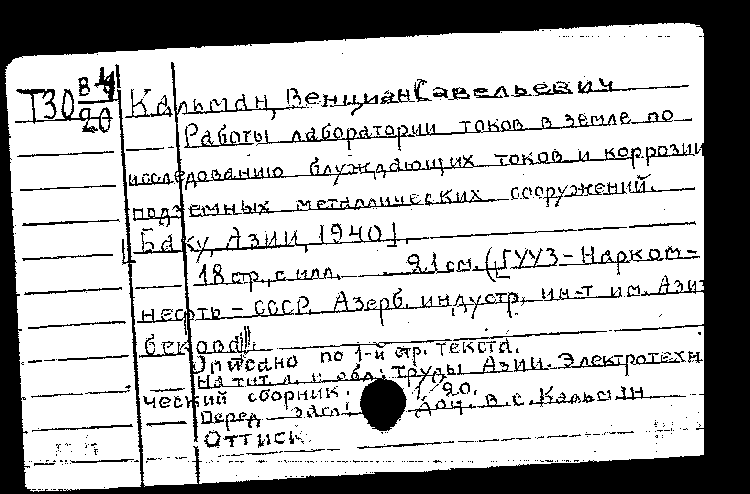 Т30 В4/20 Кальман, Венциан Савельевич
Работы лаборатории токов в земле по
исследованию блуждающих токов и коррозии
подземных металлических сооружений.
[Баку, Азии, 1940].
18 стр., с илл. 21 см. (ГУУЗ - Нарком-
нефть - СССР. Азерб. индустр. ин-т им. Азиз
бекова).
Описано по 1-й стр. текста.
На тит. л. и обл.: Труды Азии. Электротехни
ческий сборник. 1/20.
Перед загл.: Доц. В. С. Кальман
Оттиск